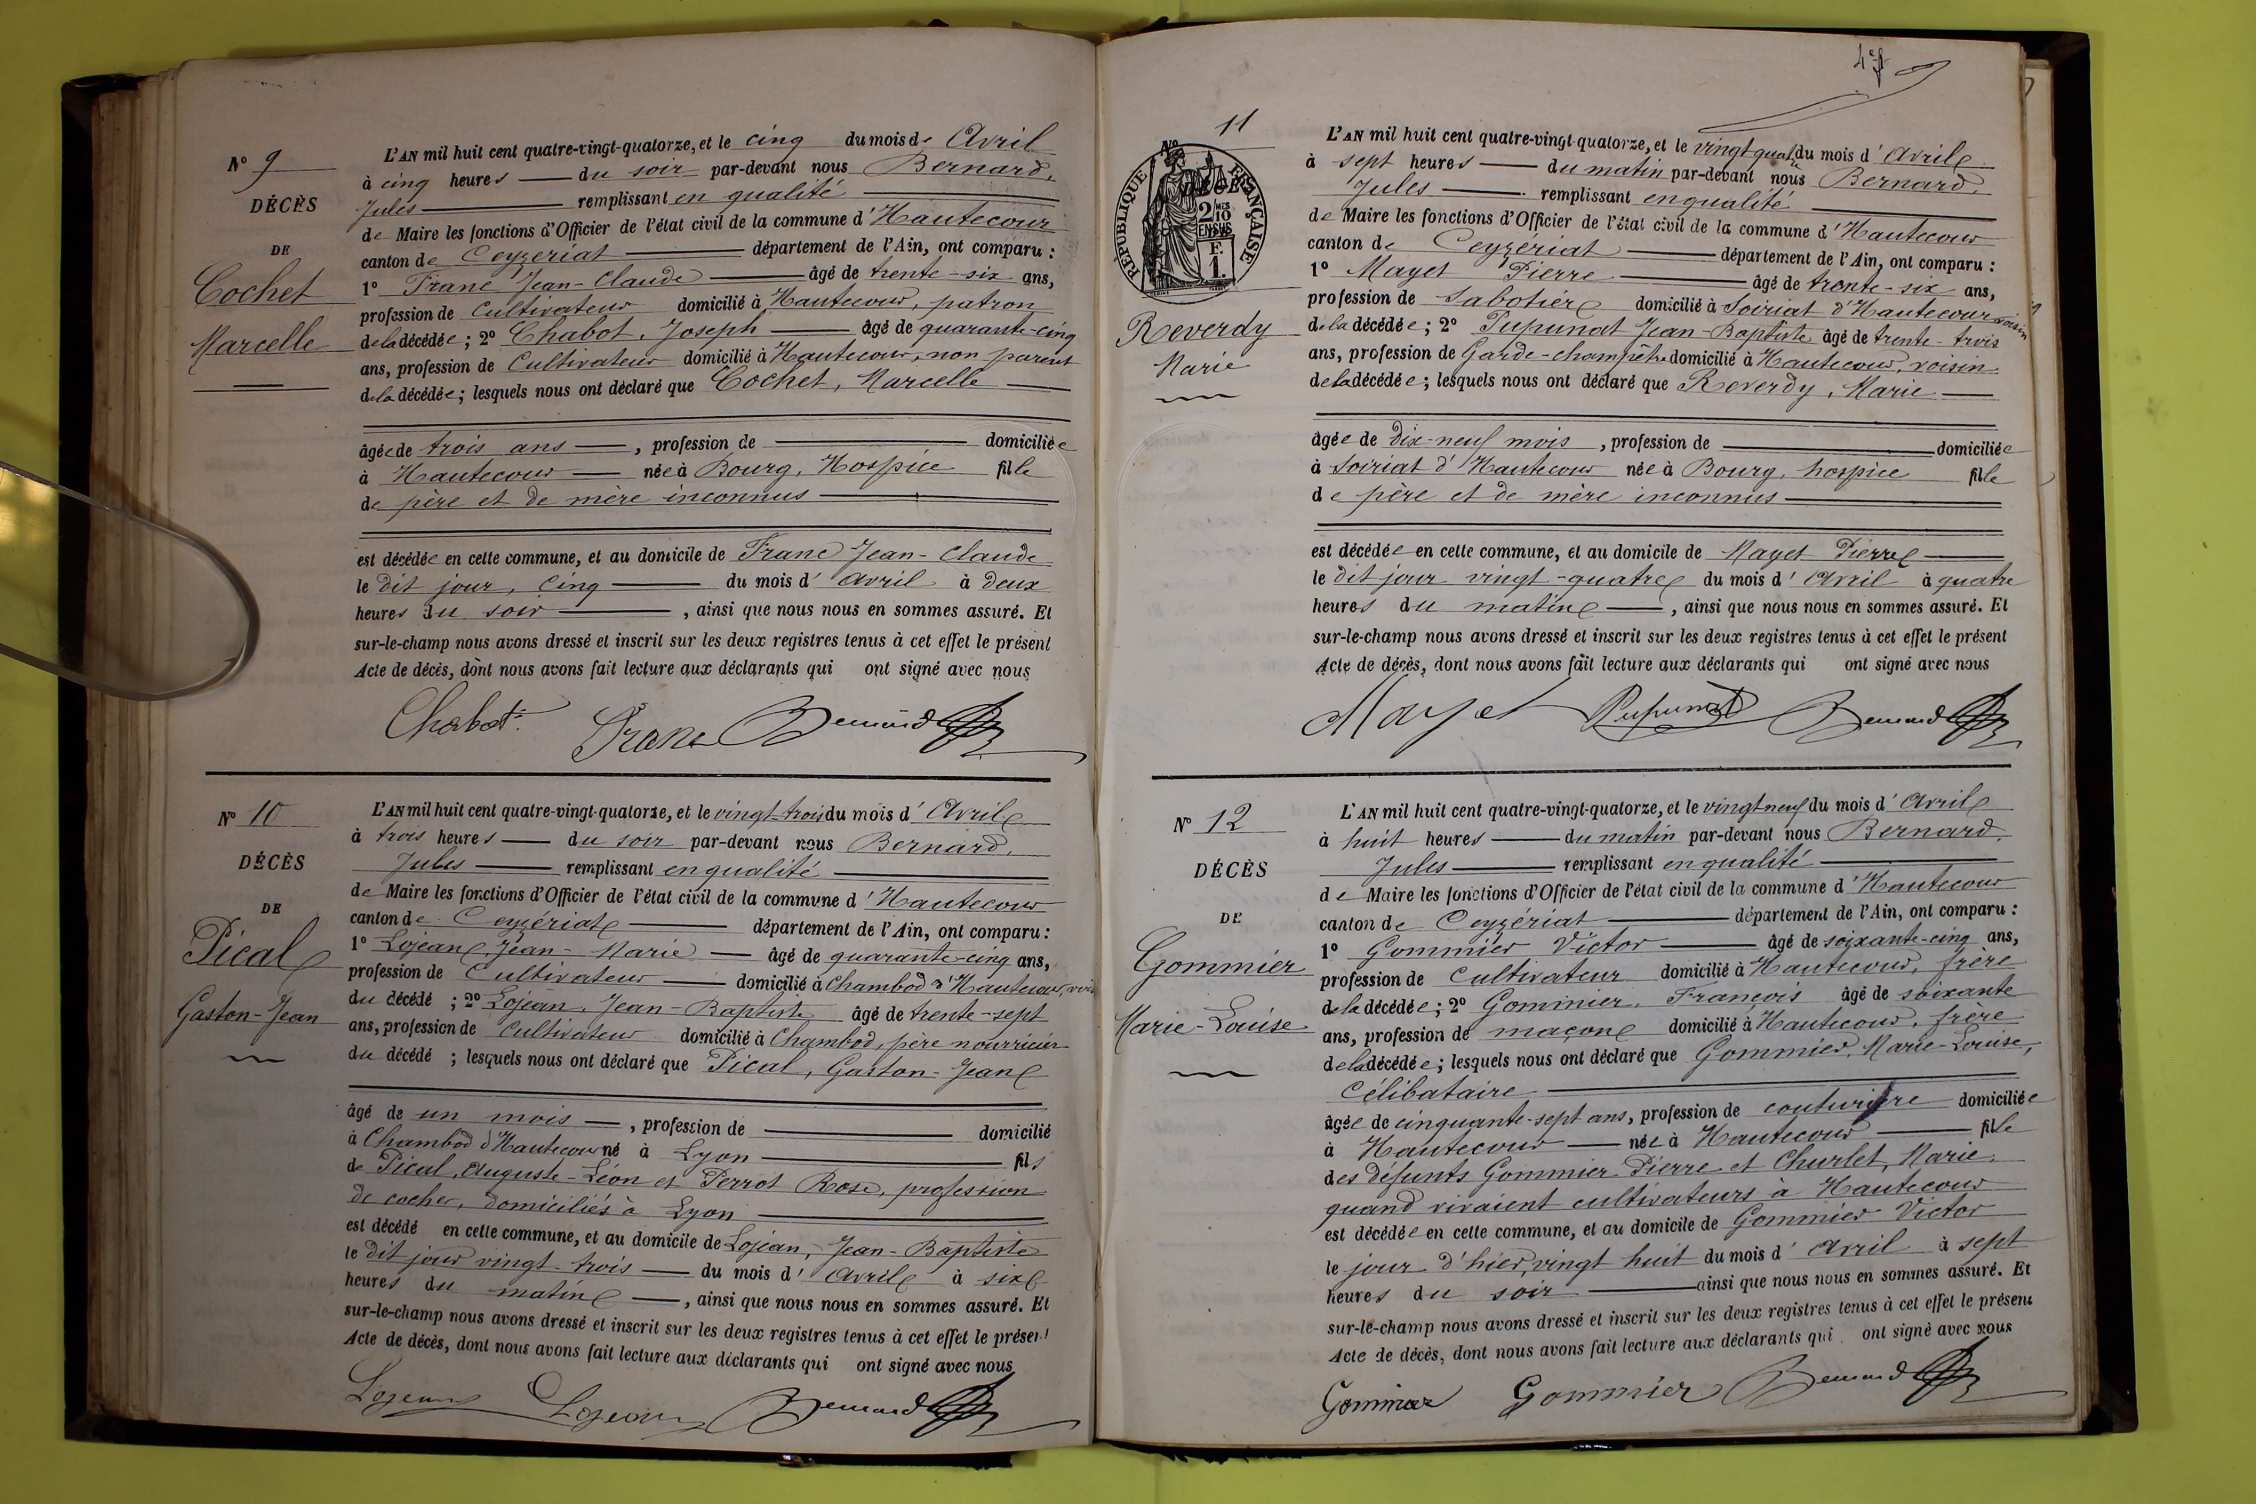 N° 9
DÉCÈS
DE
Cochet
Marcelle
L'AN mil huit cent quatre-vingt-quatorze, et le cinq du mois de Avril
à cinq heures du soir par-devant nous Bernard,
Jules remplissant en qualité
de Maire les fonctions d'Officier de l'état civil de la commune d'Hautecour
canton de Ceyzériat département de l'Ain, ont comparu :
1° Franc Jean-Claude âgé de trente-six ans,
profession de cultivateur domicilié à Hautecour, patron
de la décédée ; 2° Chabot, Joseph âgé de quarante-cinq
ans, profession de Cultivateur domicilié à Hautecour, non parent
de la décédée ; lesquels nous ont déclaré que Cochet, Marcelle
âgée de trois ans, profession de domiciliée
à Hautecour née à Bourg, Hospice fille
de père et de mère inconnus
est décédée en cette commune, et au domicile de Franc Jean-Claude
le dit jour, cinq du mois d'avril à deux
heures du soir, ainsi que nous nous en sommes assuré. Et
sur-le-champ nous avons dressé et inscrit sur les deux registres tenus à cet effet le présent
Acte de décès, dont nous avons fait lecture aux déclarants qui ont signé avec nous
Chabot Franc Bernard
N° 10
DÉCÈS
DE
Pical
Gaston-Jean
L'AN mil huit cent quatre-vingt-quatorze, et le vingt-trois du mois d'Avril
à trois heures du soir par-devant nous Bernard,
Jules remplissant en qualité
de Maire les fonctions d'Officier de l'état civil de la commune d'Hautecour
canton de Ceyzériat département de l'Ain, ont comparu :
1° Lojean, Jean-Marie âgé de quarante-cinq ans,
profession de Cultivateur domicilié à Chambod d'Hautecour,
du décédé ; 2° Lojean, Jean-Baptiste âgé de trente-sept
ans, profession de cultivateur domicilié à Chambod, père nourricier
du décédé ; lesquels nous ont déclaré que Pical, Gaston-Jean
âgé de un mois, profession de domicilié
à Chambod d'Hautecour né à Lyon fils
de Pical, Auguste-Léon et Perrot Rose, profession
de cocher, domiciliés à Lyon
est décédé en cette commune, et au domicile de Lojean, Jean-Baptiste
le dit jour vingt-trois du mois d'avril à six
heures du matin, ainsi que nous nous en sommes assuré. Et
sur-le-champ nous avons dressé et inscrit sur les deux registres tenus à cet effet le présent
Acte de décès, dont nous avons fait lecture aux déclarants qui ont signé avec nous
Lojean Lojean Bernard
11
N°
RÉPUBLIQUE FRANÇAISE
2/10 MES
EN SUS
F.
1.
Reverdy
Marie
L'AN mil huit cent quatre-vingt-quatorze, et le vingt quatre du mois d'Avril
à sept heures du matin par-devant nous Bernard,
Jules remplissant en qualité
de Maire les fonctions d'Officier de l'état civil de la commune d'Hautecour
canton de Ceyzériat département de l'Ain, ont comparu :
1° Mayet Pierre âgé de trente-six ans,
profession de Sabotier domicilié à Soiriat d'Hautecour voisin
de la décédée ; 2° Pupunat Jean-Baptiste âgé de trente-trois
ans, profession de Garde-champêtre domicilié à Hautecour, voisin
de la décédée ; lesquels nous ont déclaré que Reverdy, Marie
âgée de dix-neuf mois, profession de domiciliée
à Soiriat d'Hautecour née à Bourg, hospice fille
de père et de mère inconnus
est décédée en cette commune, et au domicile de Mayet Pierre
le dit jour vingt-quatre du mois d'Avril à quatre
heures du matin, ainsi que nous nous en sommes assuré. Et
sur-le-champ nous avons dressé et inscrit sur les deux registres tenus à cet effet le présent
Acte de décès, dont nous avons fait lecture aux déclarants qui ont signé avec nous
Mayet Pupunat Bernard
N° 12
DÉCÈS
DE
Gommier
Marie-Louise
L'AN mil huit cent quatre-vingt-quatorze, et le vingt neuf du mois d'Avril
à huit heures du matin par-devant nous Bernard,
Jules remplissant en qualité
de Maire les fonctions d'Officier de l'état civil de la commune d'Hautecour
canton de Ceyzériat département de l'Ain, ont comparu :
1° Gommier Victor âgé de soixante-cinq ans,
profession de cultivateur domicilié à Hautecour, frère
de la décédée ; 2° Gommier, François âgé de soixante
ans, profession de maçon domicilié à Hautecour, frère
de la décédée ; lesquels nous ont déclaré que Gommier, Marie-Louise,
Célibataire
âgée de cinquante-sept ans, profession de couturière domiciliée
à Hautecour née à Hautecour fille
des défunts Gommier Pierre et Churlet, Marie,
quand vivaient cultivateurs à Hautecour
est décédée en cette commune, et au domicile de Gommier Victor
le jour d'hier, vingt huit du mois d'Avril à sept
heures du soir ainsi que nous nous en sommes assuré. Et
sur-le-champ nous avons dressé et inscrit sur les deux registres tenus à cet effet le présent
Acte de décès, dont nous avons fait lecture aux déclarants qui ont signé avec nous
Gommier Gommier Bernard